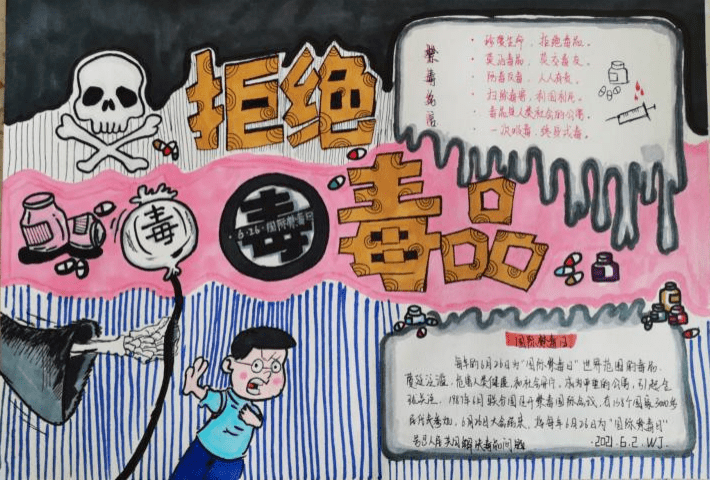 拒绝
毒品
毒
毒
·6·26·国际禁毒日
禁毒标语
·珍爱生命，拒绝毒品。
·莫沾毒品，莫交毒友。
·防毒反毒，人人有责。
·扫除毒害，利国利民。
·毒品是人类社会的公害。
·一次吸毒，终身戒毒。
国际禁毒日
每年的6月26日为“国际禁毒日”世界范围的毒品
蔓延泛滥，危害人类健康，和社会
的公害，引起全
1987年6月联合国召开禁毒国际会议，有138个国家3000多
6月26日大会结束，每年6月26日为“国际禁毒日”
共同解决毒品问题
·2021.6.2 WJ.